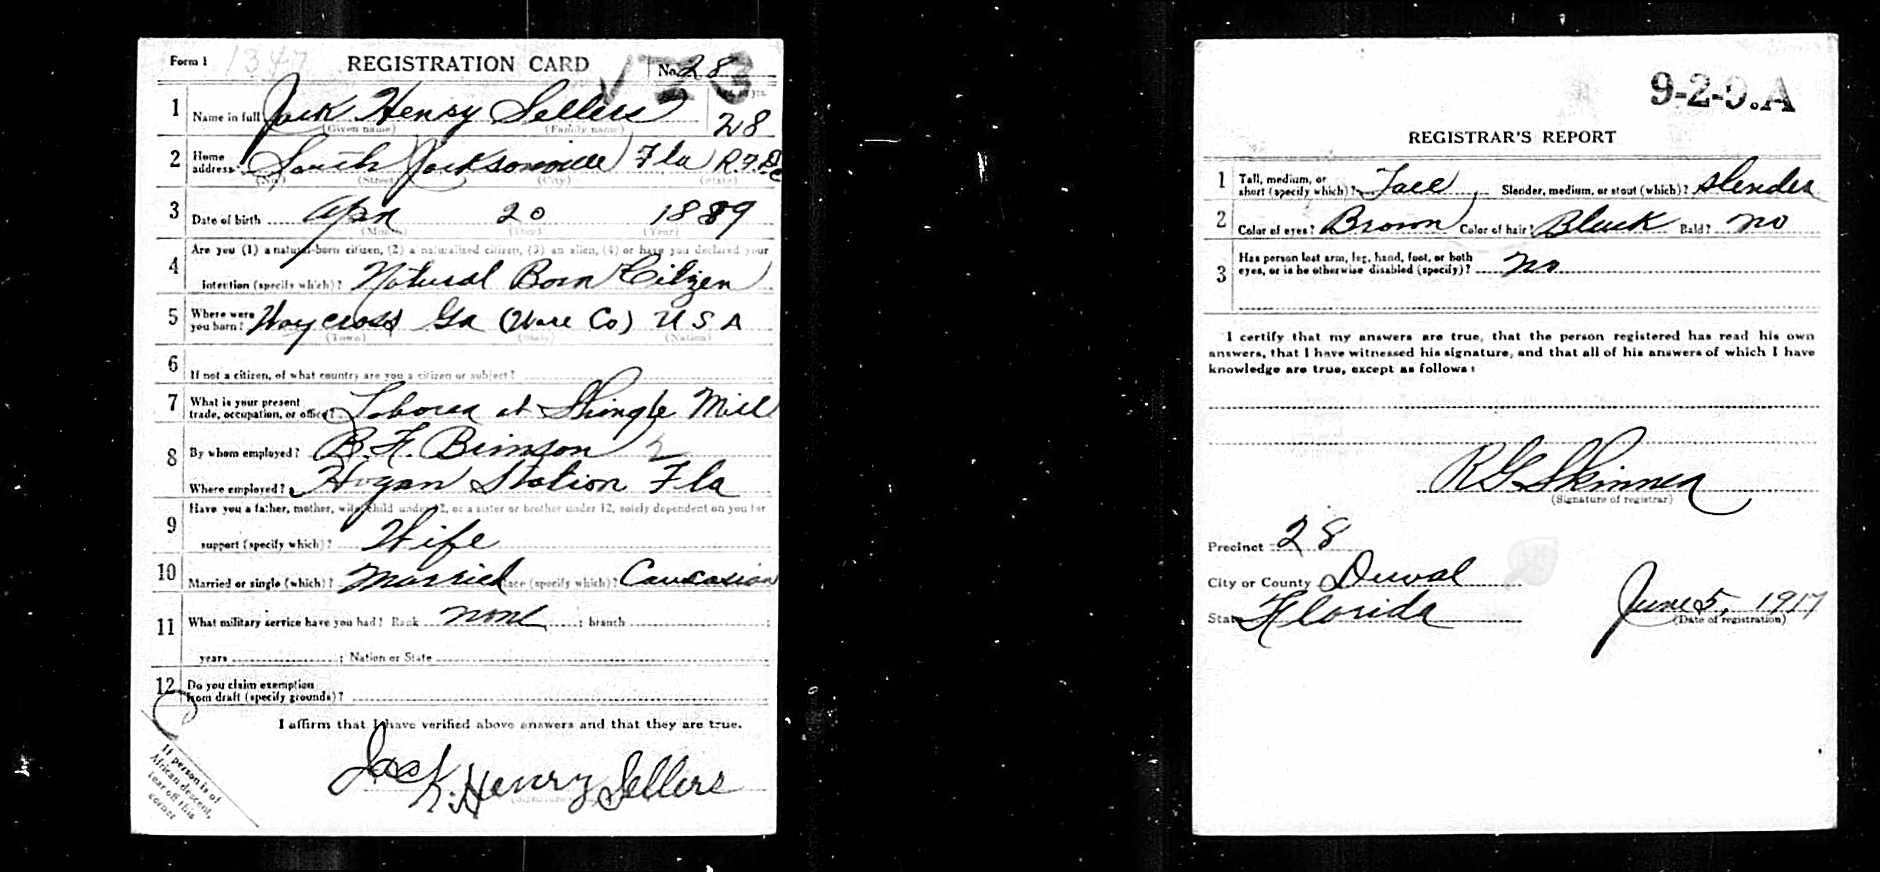 Form 1 1347 REGISTRATION CARD No. 28
1 Name in full Jack Henry Sellers 28
(Given name) (Family name) Age, in yrs.
2 Home address South Jacksonville Fla R.F.D.
(No.) (Street) (City) (State)
3 Date of birth Apr 20 1889
(Month) (Day) (Year)
4 Are you (1) a natural-born citizen, (2) a naturalized citizen, (3) an alien, (4) or have you declared your
intention (specify which)? Natural Born Citizen
5 Where were you born? Waycross Ga (Ware Co) U S A
(Town) (State) (Nation)
6 If not a citizen, of what country are you a citizen or subject?
7 What is your present trade, occupation, or office? Laborer at Shingle Mill
8 By whom employed? B.F. Bimson 2
Where employed? Hogan Station Fla
9 Have you a father, mother, wife, child under 12, or a sister or brother under 12, solely dependent on you for
support (specify which)? Wife
10 Married or single (which)? Married Race (specify which)? Caucasian
11 What military service have you had? Rank none ; branch ;
years ; Nation or State
12 Do you claim exemption from draft (specify grounds)?
I affirm that I have verified above answers and that they are true.
Jack. Henry Sellers
(Signature
If person is of
African descent,
tear off this
corner
9-2-9.A
REGISTRAR'S REPORT
1 Tall, medium, or short (specify which)? Tall Slender, medium, or stout (which)? slender
2 Color of eyes? Brown Color of hair? Black Bald? no
3 Has person lost arm, leg, hand, foot, or both eyes, or is he otherwise disabled (specify)? no
I certify that my answers are true, that the person registered has read his own
answers, that I have witnessed his signature, and that all of his answers of which I have
knowledge are true, except as follows:
R G Skinner
(Signature of registrar)
Precinct 28
City or County Duval
State Florida June 5, 1917
(Date of registration)